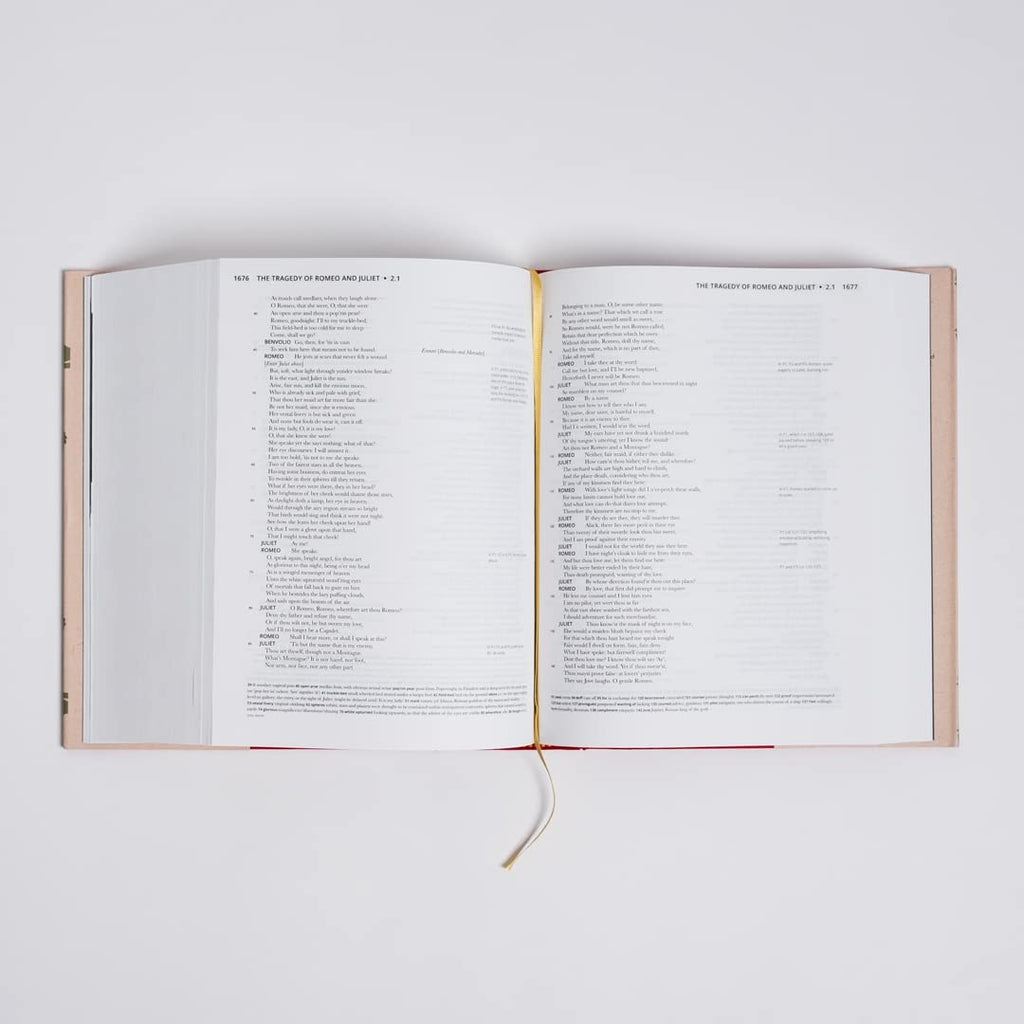 1676 THE TRAGEDY OF ROMEO AND JULIET • 2.1
As maids call medlars, when they laugh alone.
O Romeo, that she were, O, that she were
An open arse and thou a pop'rin pear!
Romeo, goodnight: I'll to my truckle-bed,
This field-bed is too cold for me to sleep.
Come, shall we go?
BENVOLIO Go, then, for 'tis in vain
To seek him here that means not to be found.
Exeunt [Benvolio and Mercutio]
ROMEO He jests at scars that never felt a wound.
[Enter Juliet above]
But, soft, what light through yonder window breaks?
It is the east, and Juliet is the sun.
Arise, fair sun, and kill the envious moon,
Who is already sick and pale with grief,
That thou her maid art far more fair than she:
Be not her maid, since she is envious.
Her vestal livery is but sick and green
And none but fools do wear it, cast it off.
It is my lady, O, it is my love!
O, that she knew she were!
She speaks yet she says nothing: what of that?
Her eye discourses: I will answer it.
I am too bold, 'tis not to me she speaks.
Two of the fairest stars in all the heaven,
Having some business, do entreat her eyes
To twinkle in their spheres till they return.
What if her eyes were there, they in her head?
The brightness of her cheek would shame those stars,
As daylight doth a lamp, her eye in heaven
Would through the airy region stream so bright
That birds would sing and think it were not night.
See how she leans her cheek upon her hand!
O, that I were a glove upon that hand,
That I might touch that cheek!
JULIET Ay me!
ROMEO She speaks:
O, speak again, bright angel, for thou art
As glorious to this night, being o'er my head
As is a wingèd messenger of heaven
Unto the white upturnèd wond'ring eyes
Of mortals that fall back to gaze on him
When he bestrides the lazy puffing clouds,
And sails upon the bosom of the air.
JULIET O Romeo, Romeo, wherefore art thou Romeo?
Deny thy father and refuse thy name,
Or if thou wilt not, be but sworn my love,
And I'll no longer be a Capulet.
ROMEO Shall I hear more, or shall I speak at this?
JULIET 'Tis but thy name that is my enemy.
Thou art thyself, though not a Montague.
What's Montague? It is nor hand, nor foot,
Nor arm, nor face, nor any other part
THE TRAGEDY OF ROMEO AND JULIET • 2.1 1677
Belonging to a man. O, be some other name.
What's in a name? That which we call a rose
By any other word would smell as sweet,
So Romeo would, were he not Romeo called,
Retain that dear perfection which he owes
Without that title. Romeo, doff thy name,
And for thy name, which is no part of thee,
Take all myself.
ROMEO I take thee at thy word:
Call me but love, and I'll be new baptized,
Henceforth I never will be Romeo.
JULIET What man art thou that thus bescreened in night
So stumblest on my counsel?
ROMEO By a name
I know not how to tell thee who I am.
My name, dear saint, is hateful to myself,
Because it is an enemy to thee.
Had I it written, I would tear the word.
JULIET My ears have yet not drunk a hundred words
Of thy tongue's uttering, yet I know the sound:
Art thou not Romeo and a Montague?
ROMEO Neither, fair maid, if either thee dislike.
JULIET How cam'st thou hither, tell me, and wherefore?
The orchard walls are high and hard to climb,
And the place death, considering who thou art,
If any of my kinsmen find thee here.
ROMEO With love's light wings did I o'er-perch these walls,
For stony limits cannot hold love out,
And what love can do that dares love attempt,
Therefore thy kinsmen are no stop to me.
JULIET If they do see thee, they will murder thee.
ROMEO Alack, there lies more peril in thine eye
Than twenty of their swords: look thou but sweet,
And I am proof against their enmity.
JULIET I would not for the world they saw thee here.
ROMEO I have night's cloak to hide me from their eyes,
And but thou love me, let them find me here:
My life were better ended by their hate,
Than death proroguèd, wanting of thy love.
JULIET By whose direction found'st thou out this place?
ROMEO By love, that first did prompt me to inquire:
He lent me counsel and I lent him eyes.
I am no pilot, yet wert thou as far
As that vast shore washed with the farthest sea,
I should adventure for such merchandise.
JULIET Thou know'st the mask of night is on my face,
Else would a maiden blush bepaint my cheek
For that which thou hast heard me speak tonight.
Fain would I dwell on form, fain, fain deny
What I have spoke: but farewell compliment!
Dost thou love me? I know thou wilt say 'Ay',
And I will take thy word. Yet if thou swear'st,
Thou mayst prove false: at lovers' perjuries
They say Jove laughs. O gentle Romeo,